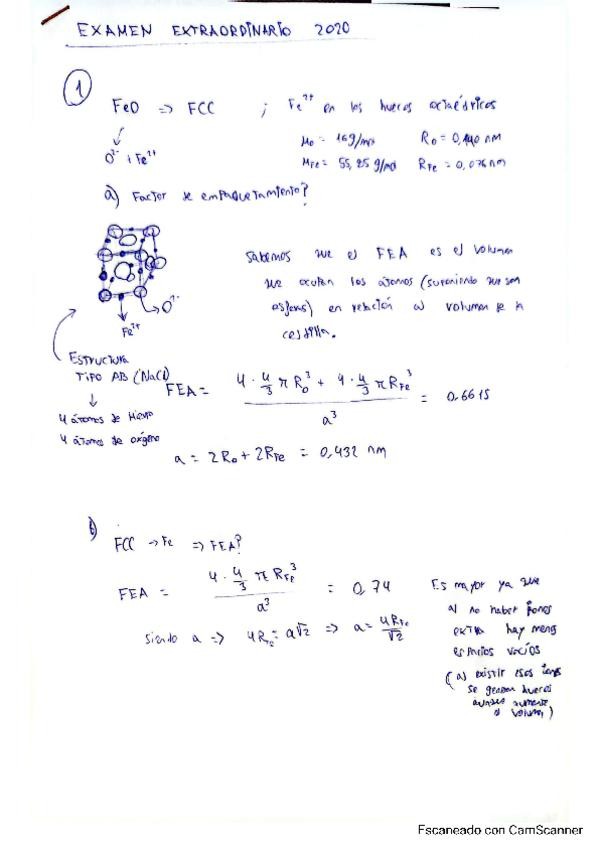 EXAMEN EXTRAORDINARIO 2020
1
FeO => FCC ; Fe²⁺ en los huecos octaédricos
O²⁻ + Fe²⁺
Mo = 16g/mol Ro = 0,140 nm
MFe = 55,85 g/mol RFe = 0,076 nm
a) Factor de empaquetamiento?
Sabemos que el FEA es el volumen
que ocupan los átomos (suponiendo que son
esferas) en relación al volumen de la
cestilla.
O²⁻
Fe²⁺
ESTRUCTURA
TIPO AB (NaCl)
4 átomos de hierro
4 átomos de oxígeno
FEA = (4 · 4/3 π Ro³ + 4 · 4/3 π RFe³) / a³ = 0,6615
a = 2Ro + 2RFe = 0,432 nm
b)
FCC → Fe => FEA?
FEA = (4 · 4/3 π RFe³) / a³ = 0,74
Siendo a => 4RFe = a√2 => a = 4RFe/√2
Es mayor ya que
al no haber iones
extra hay menos
espacios vacíos
(al existir esos iones
se generan huecos
aunque aumente
el volumen)
Escaneado con CamScanner